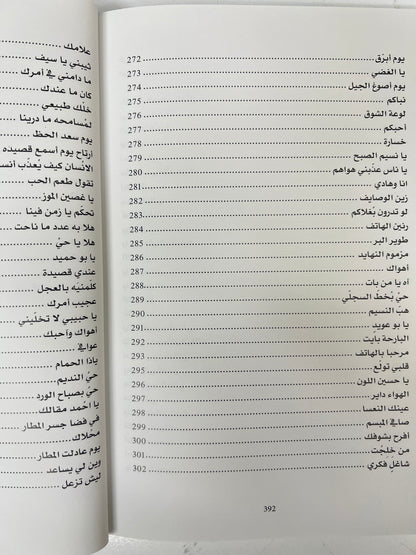 يوم أبرَق 272
يا الغضي 273
يوم أصوغ الجيل 274
نباكم 275
لوعة الشوق 276
أحبكم 277
خسارة 278
يا نسيم الصبح 279
يا ناس عذّبني هواهم 280
أنا وهادي 281
زين الوصايف 282
لو تدرون بْغلاكم 283
رنين الهاتف 284
طوير البر 285
مزموم النهايد 286
أهواك 287
أه يا من بات 288
حيّ بْخطّ السجلّي 289
هبّ النسيم 290
يا بو عويد 291
البارحة بايت 292
مرحبا بالهاتف 293
قلبي تولّع 295
يا حسين اللون 296
الهواء داير 297
عينك النعسا 298
صافي المبسم 299
أفرح بشوفك 300
من خِلِجْت 301
شاغل فكري 302
392
علامك
ثيبني يا سيف
ما دامني في أمرك
كان ما عندك
خلّك طبيعي
لمْسامحه ما درينا
يوم سعد الحظ
أرتاح يوم أسمع قصيده
الانسان كيف يْعذّب أنسـ
تقول طعم الحب
يا غصين الموز
تحكّم يا زمن فينا
هلا به عدد ما ناحت
هلا يا حيّ
يا بو حميد
عندي قصيدة
كلّمنيّه بالعجل
عجيب أمرك
يا حبيبي لا تخلّيني
أهواك وأحبك
عوافي
ياذا الحمام
حيّ النديم
حيّ بصباح الورد
يا احْمد مقالك
في فضا جسر المطار
محلاك
يوم عادلت المطار
وين لي يساعد
ليش تزعل